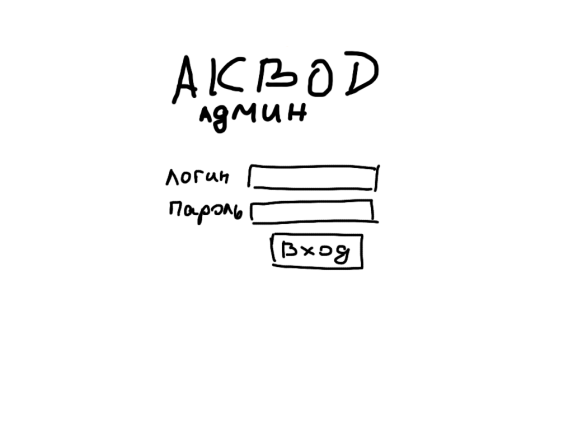 AKBOD
админ
логин
Пароль
Вход